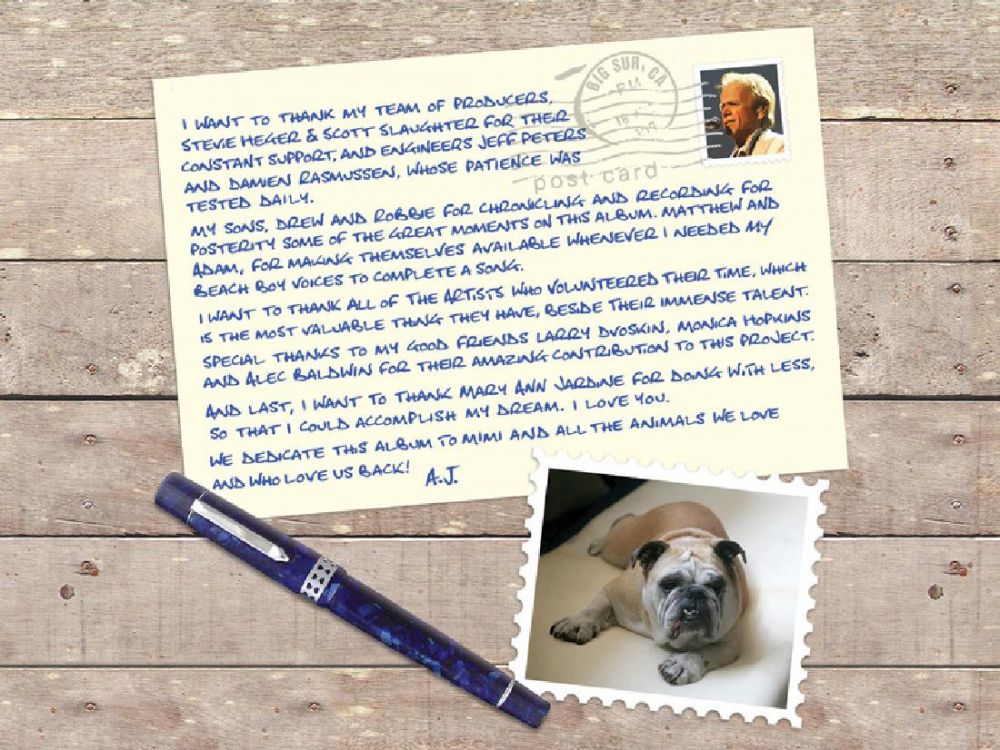 BIG SUR, CA
post card
I WANT TO THANK MY TEAM OF PRODUCERS,
STEVIE HEGER & SCOTT SLAUGHTER FOR THEIR
CONSTANT SUPPORT, AND ENGINEERS JEFF PETERS
AND DAMIEN RASMUSSEN, WHOSE PATIENCE WAS
TESTED DAILY.
MY SONS, DREW AND ROBBIE FOR CHRONICLING AND RECORDING FOR
POSTERITY SOME OF THE GREAT MOMENTS ON THIS ALBUM. MATTHEW AND
ADAM, FOR MAKING THEMSELVES AVAILABLE WHENEVER I NEEDED MY
BEACH BOY VOICES TO COMPLETE A SONG.
I WANT TO THANK ALL OF THE ARTISTS WHO VOLUNTEERED THEIR TIME, WHICH
IS THE MOST VALUABLE THING THEY HAVE, BESIDE THEIR IMMENSE TALENT.
SPECIAL THANKS TO MY GOOD FRIENDS LARRY DVOSKIN, MONICA HOPKINS
AND ALEC BALDWIN FOR THEIR AMAZING CONTRIBUTION TO THIS PROJECT.
AND LAST, I WANT TO THANK MARY ANN JARDINE FOR DOING WITH LESS,
SO THAT I COULD ACCOMPLISH MY DREAM. I LOVE YOU.
WE DEDICATE THIS ALBUM TO MIMI AND ALL THE ANIMALS WE LOVE
AND WHO LOVE US BACK! A.J.